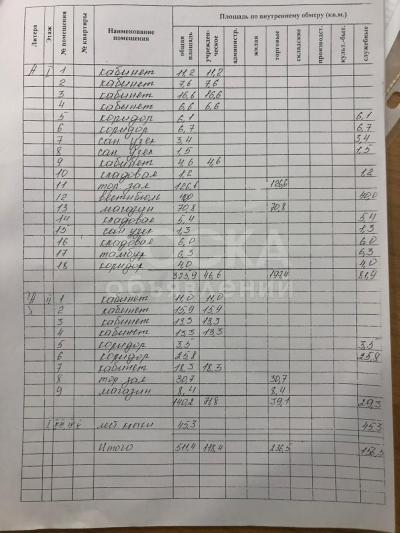 Литера Этаж № помещения № квартиры Наименование помещения Площадь по внутреннему обмеру (кв.м.)
общая площадь учрежденческое администр. жилая торговые складские производст. культ.-быт. служебные
А I 1 кабинет 18,2 18,2
2 кабинет 7,6 7,6
3 кабинет 16,6 16,6
4 кабинет 6,6 6,6
5 коридор 6,1 6,1
6 коридор 6,7 6,7
7 сан узел 3,4 3,4
8 сан узел 1,5 1,5
9 кабинет 4,6 4,6
10 кладовая 1,2 1,2
11 тор. зал 126,6 126,6
12 вестибюль 40,0
13 магазин 70,8 70,8
14 кладовая 5,4 5,4
15 сан узел 1,3 1,3
16 кладовая 6,0 6,0
17 тамбур 6,3 6,3
18 коридор 4,0 4,0
46,6
объявлений
А II 1 кабинет 11,0 11,0
2 кабинет 15,9 15,9
3 кабинет 13,3 13,3
4 кабинет 13,3 13,3
5 коридор 3,5 3,5
6 коридор 25,8 25,8
7 кабинет 18,3 18,3
8 тор. зал 30,7 30,7
9 магазин 8,4 8,4
140,2 39,1 29,3
45,3 45,3
Итого 511,4 118,4 236,5